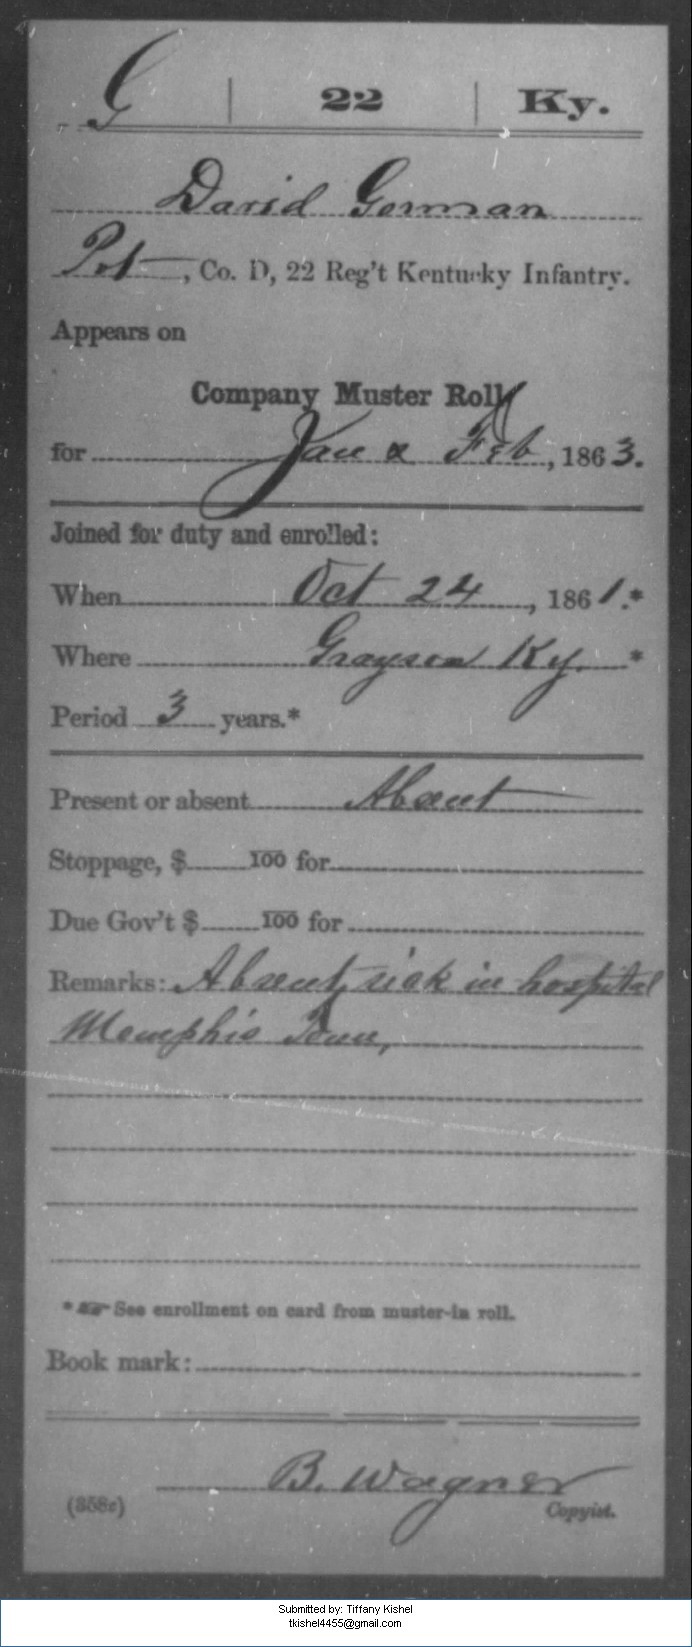 G | 22 | Ky.
David Gorman
Pvt, Co. D, 22 Reg't Kentucky Infantry.
Appears on
Company Muster Roll
for Jan & Feb, 1863.
Joined for duty and enrolled:
When Oct 24, 1861.*
Where Grayson Ky. *
Period 3 years.*
Present or absent Absent
Stoppage, $ 100 for
Due Gov't $ 100 for
Remarks: Absent, sick in hospital
Memphis Tenn,
* ☞ See enrollment on card from muster-in roll.
Book mark:
B. Wagner
(358c) Copyist.
Submitted by: Tiffany Kishel
tkishel4455@gmail.com